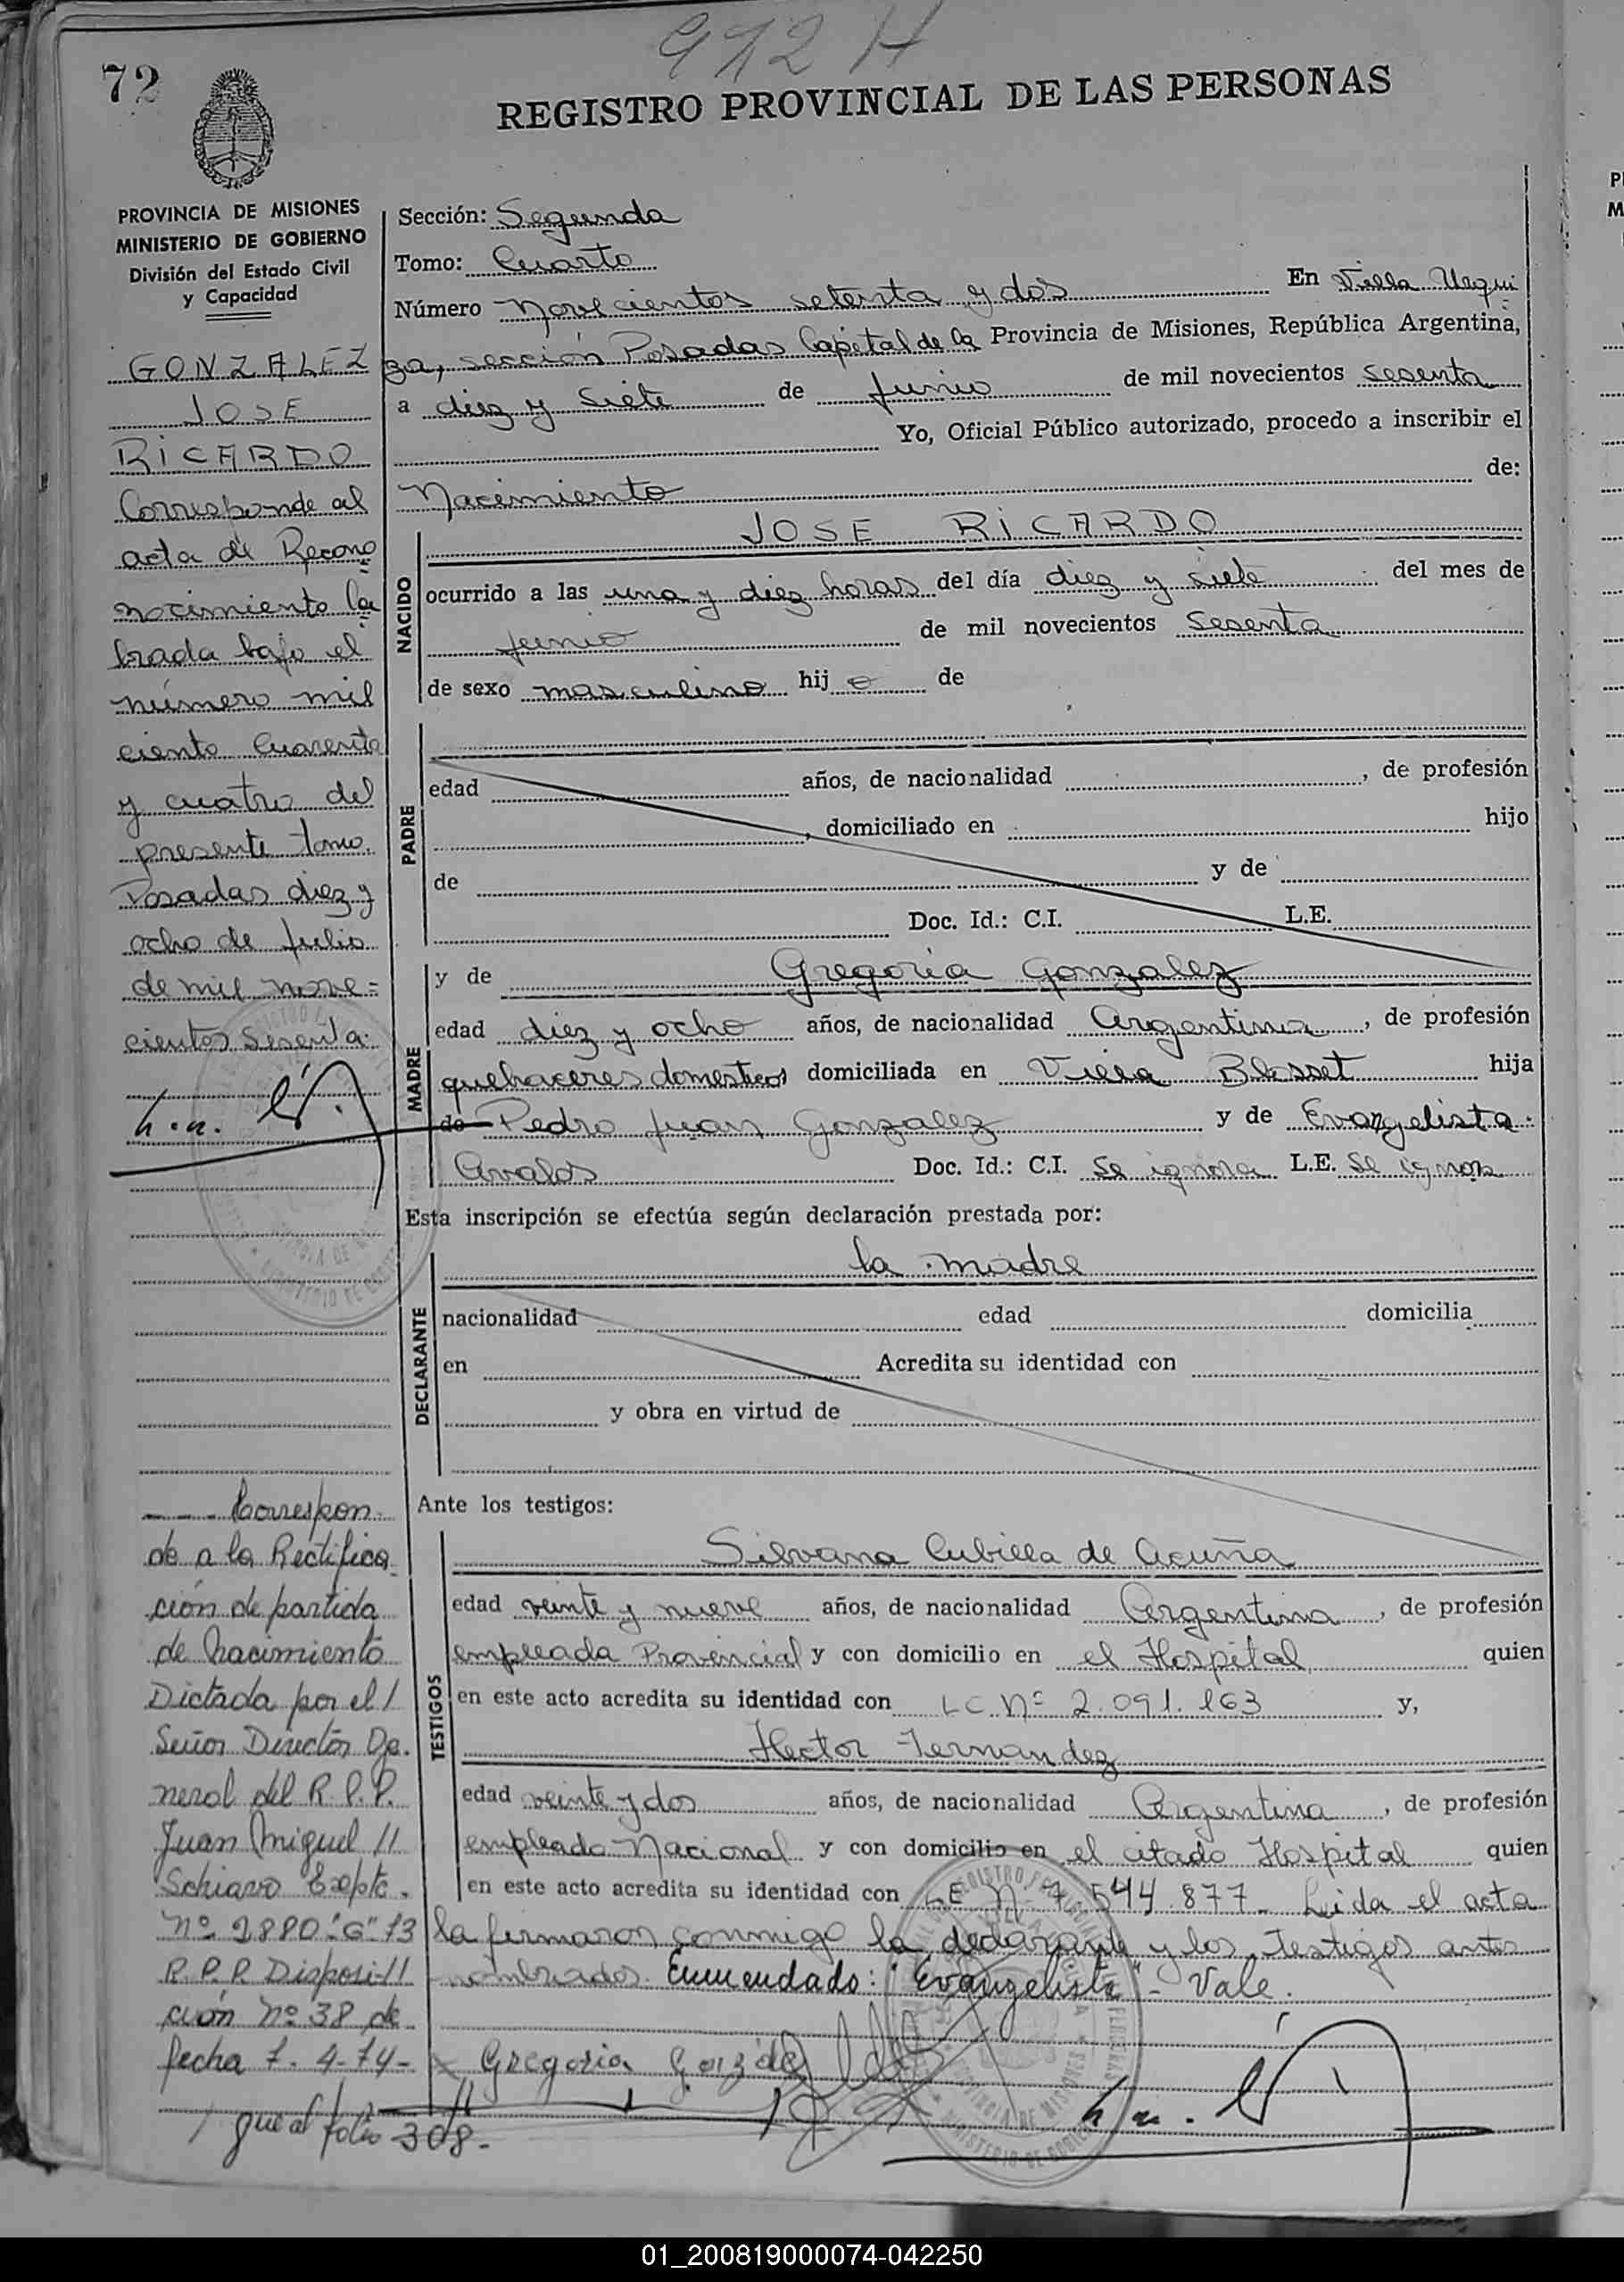 972 H
72
REGISTRO PROVINCIAL DE LAS PERSONAS
PROVINCIA DE MISIONES
MINISTERIO DE GOBIERNO
División del Estado Civil
y Capacidad
GONZALEZ
JOSE
RICARDO
Corresponde al
acta de Recono
nocimiento la
brada bajo el
número mil
ciento cuarenta
y cuatro del
presente tomo.
Posadas diez y
ocho de Julio
de mil nove=
cientos sesenta.
- - - Correspon-
de a la Rectifica
ción de partida
de Nacimiento
Dictada por el /
Señor Director Ge-
neral del R. P. P.
Juan Miguel //
Schiavo Expte.
Nº 2880 "G" 73
R. P. P. Disposi //
ción Nº 38 de
fecha 7-4-74-
/ que al folio 308.-
Sección: Segunda
Tomo: Cuarto
Número novecientos setenta y dos En Villa Urqui
za, sección Posadas Capital de la Provincia de Misiones, República Argentina,
a diez y siete de Junio de mil novecientos sesenta
Yo, Oficial Público autorizado, procedo a inscribir el
Nacimiento de:
NACIDO
JOSE RICARDO
ocurrido a las una y diez horas del día diez y siete del mes de
junio de mil novecientos sesenta
de sexo masculino hijo de
PADRE
edad años, de nacionalidad , de profesión
, domiciliado en hijo
de y de
Doc. Id.: C.I. L.E.
MADRE
y de Gregoria Gonzalez
edad diez y ocho años, de nacionalidad Argentina, de profesión
quehaceres domesticos domiciliada en Villa Blosset hija
de Pedro Juan Gonzalez y de Evangelista
Avalos Doc. Id.: C.I. se ignora L.E. se ignora
Esta inscripción se efectúa según declaración prestada por:
DECLARANTE
la madre
nacionalidad edad domicilia
en Acredita su identidad con
y obra en virtud de
Ante los testigos:
TESTIGOS
Silvana Cubilla de Acuña
edad veinte y nueve años, de nacionalidad Argentina, de profesión
empleada Provincial y con domicilio en el Hospital quien
en este acto acredita su identidad con LC Nº 2.091.163 y,
Hector Fernandez
edad veinte y dos años, de nacionalidad Argentina, de profesión
empleado Nacional y con domicilio en el citado Hospital quien
en este acto acredita su identidad con LE Nº 7.544.877- Leida el acta
la firmaron conmigo la declarante y los testigos ante
nombrados. Enmendado: "Evangelista" - Vale.
Gregoria Gonzalez
01_200819000074-042250